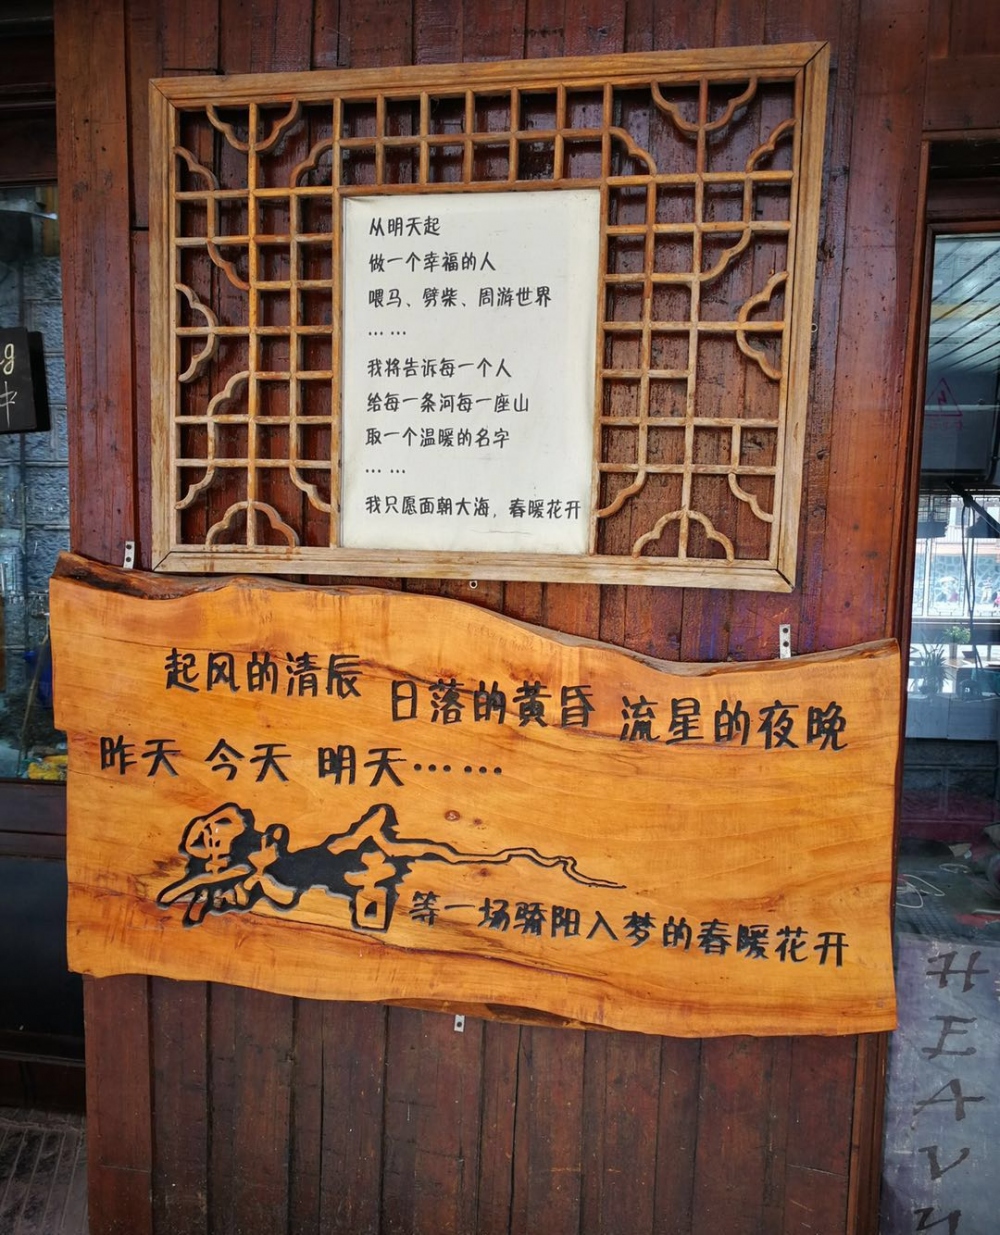 从明天起
做一个幸福的人
喂马、劈柴、周游世界
... ...
我将告诉每一个人
给每一条河每一座山
取一个温暖的名字
... ...
我只愿面朝大海，春暖花开
起风的清辰 日落的黄昏 流星的夜晚
昨天 今天 明天……
默舍
等一场骄阳入梦的春暖花开
g
中
HEAVY